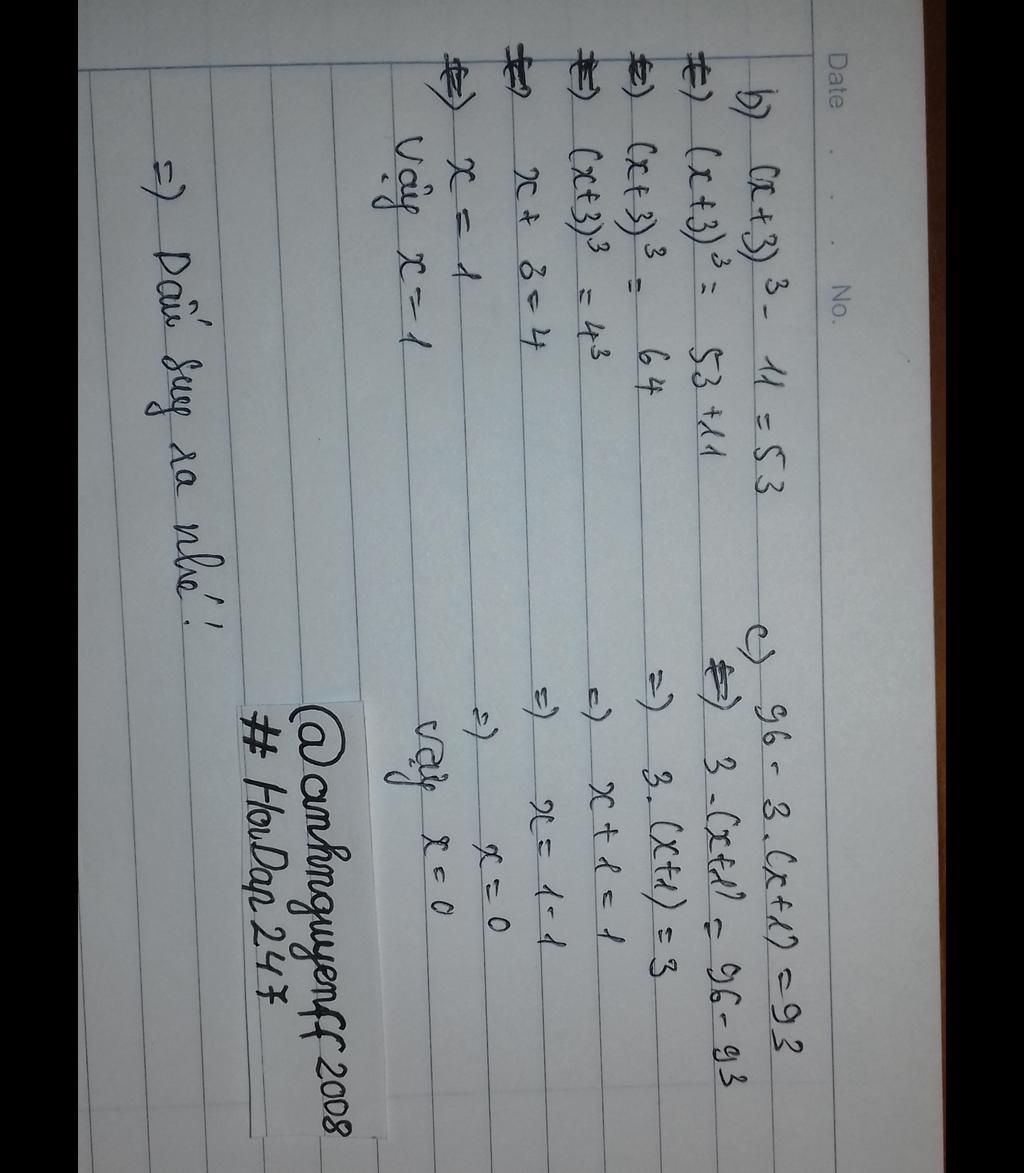 Date . . . No.
b) (x+3)³ - 11 = 53
(x+3)³ = 53 + 11
(x+3)³ = 64
(x+3)³ = 4³
x + 3 = 4
x = 1
Vậy x = 1
c) 96 - 3.(x+1) = 93
3.(x+1) = 96 - 93
=) 3.(x+1) = 3
=) x + 1 = 1
=) x = 1 - 1
=) x = 0
Vậy x = 0
=) Dấu suy ra nhé!
@anhnguyenff2008
# HoiDap247